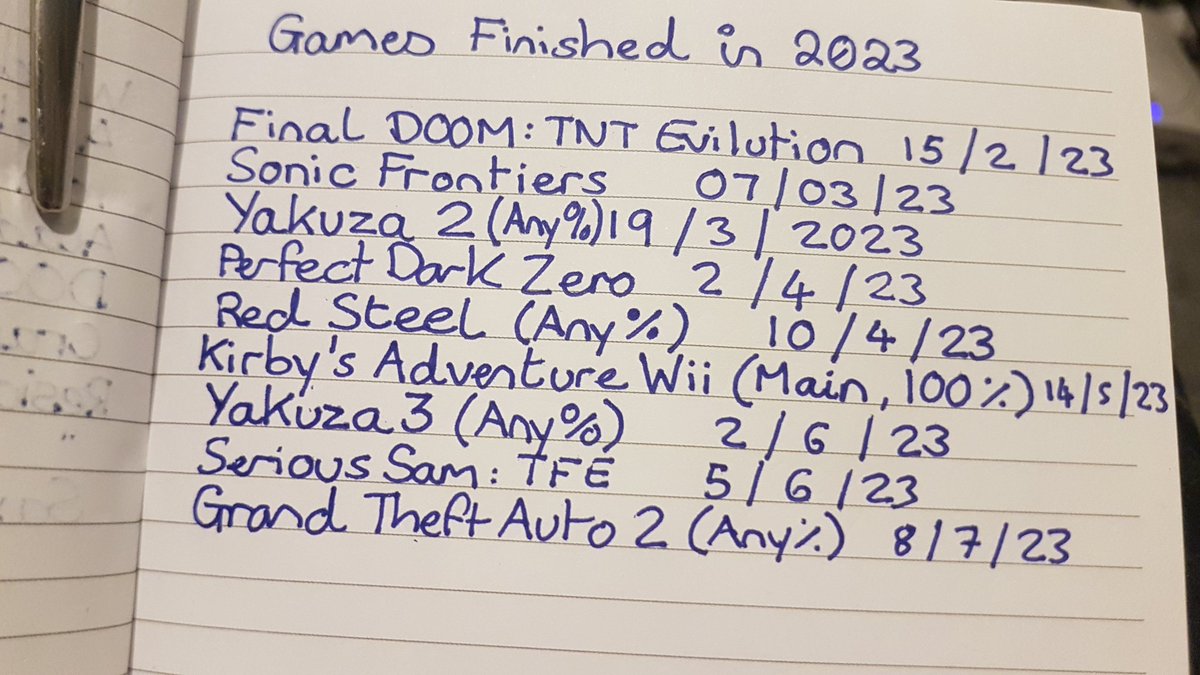 Games Finished in 2023
Final DOOM: TNT Evilution 15/2/23
Sonic Frontiers 07/03/23
Yakuza 2 (Any%) 19/3/2023
Perfect Dark Zero 2/4/23
Red Steel (Any%) 10/4/23
Kirby's Adventure Wii (Main, 100%) 14/5/23
Yakuza 3 (Any%) 2/6/23
Serious Sam: TFE 5/6/23
Grand Theft Auto 2 (Any%) 8/7/23